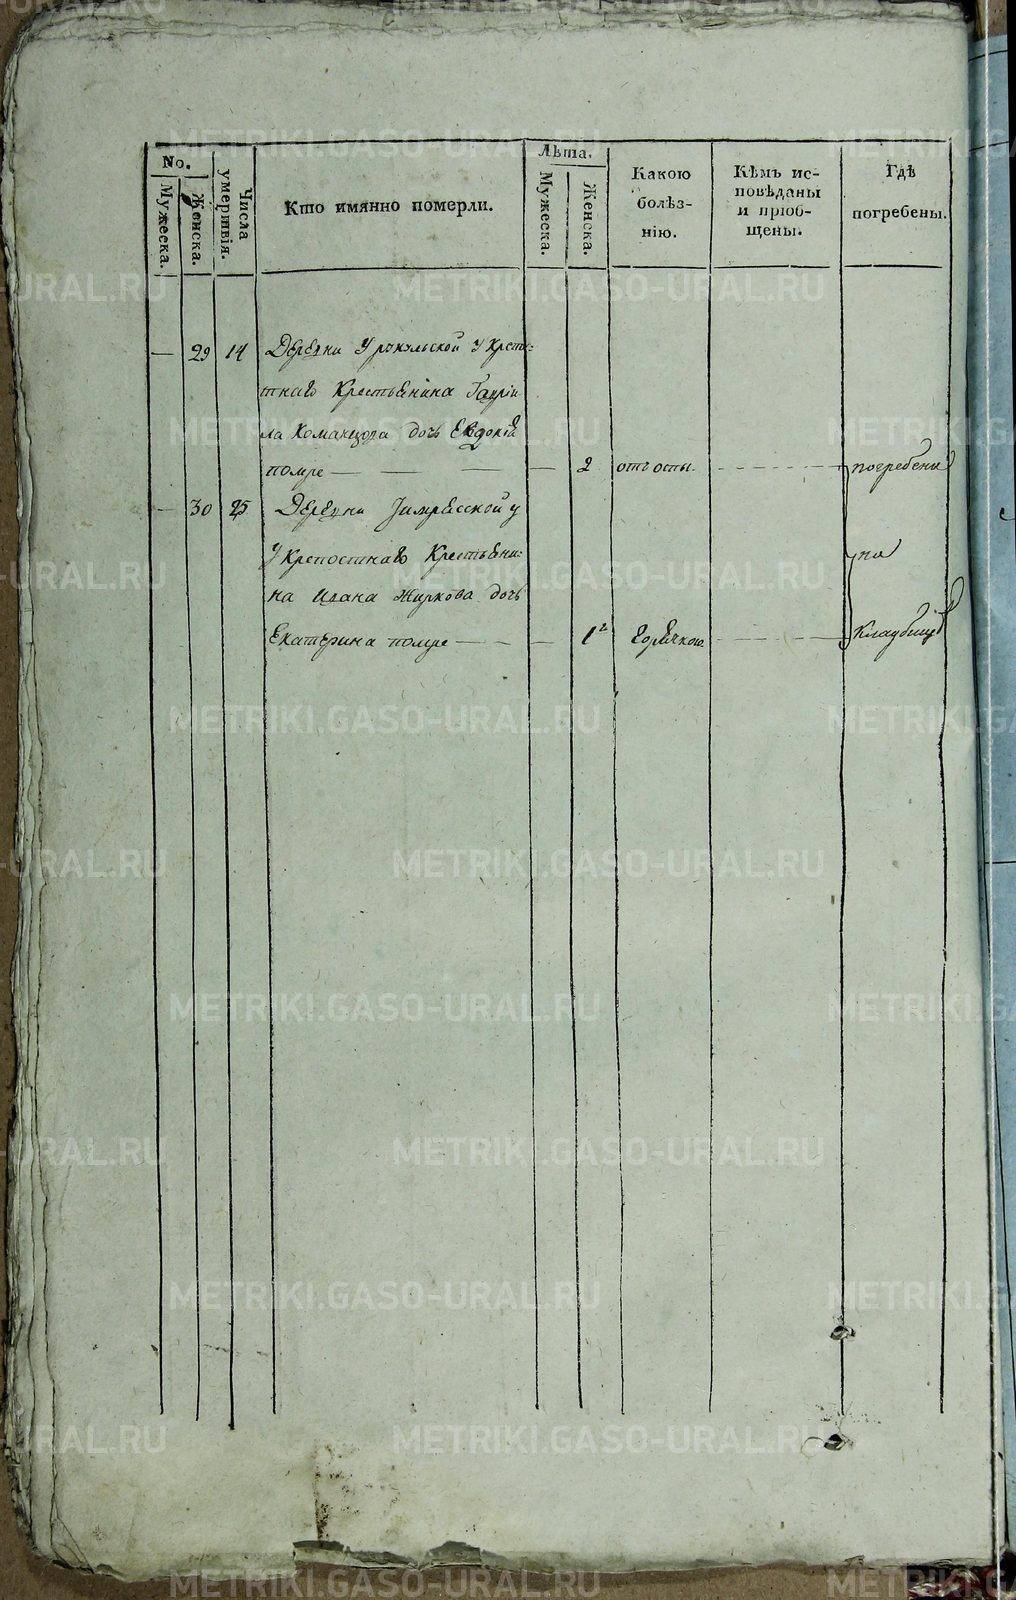 No.
Мужеска.
Женска.
Числа умертвія.
Кто имянно померли.
Лѣта.
Мужеска.
Женска.
Какою
болѣз-
нію.
Кѣмъ ис-
повѣданы
и пріоб-
щены.
Гдѣ
погребены.
— 29 14 Деревни Уркульской у крепо:
тнаго крестьянина Гаврі
ла дочь Евдокія
помре — — — — 2 отъ оспы. погребены
— 30 25 Деревни у
у крепостнаго крестьяни: на
на Ивана Жиркова дочь
Екатерина помре — — 1 горячкою. кладбищѣ
METRIKI.GASO-URAL.RU